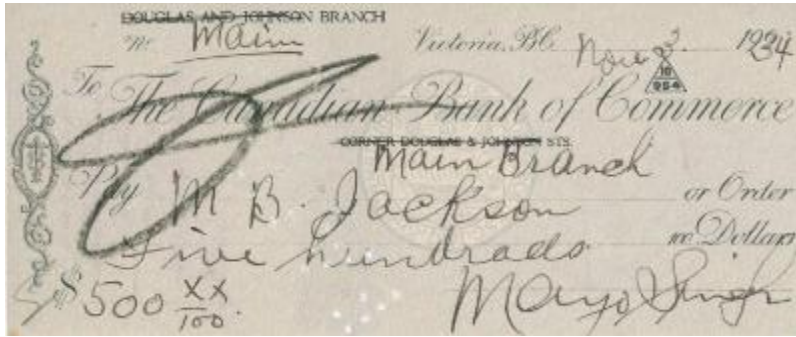 DOUGLAS AND JOHNSON BRANCH
No Main Victoria, B.C. Nov 3 1934
To The Canadian Bank of Commerce
CORNER DOUGLAS & JOHNSON STS.
Main Branch
Pay M B. Jackson or Order
Five hundrado xx/100 Dollars
$500 XX/100. Mayo Singh